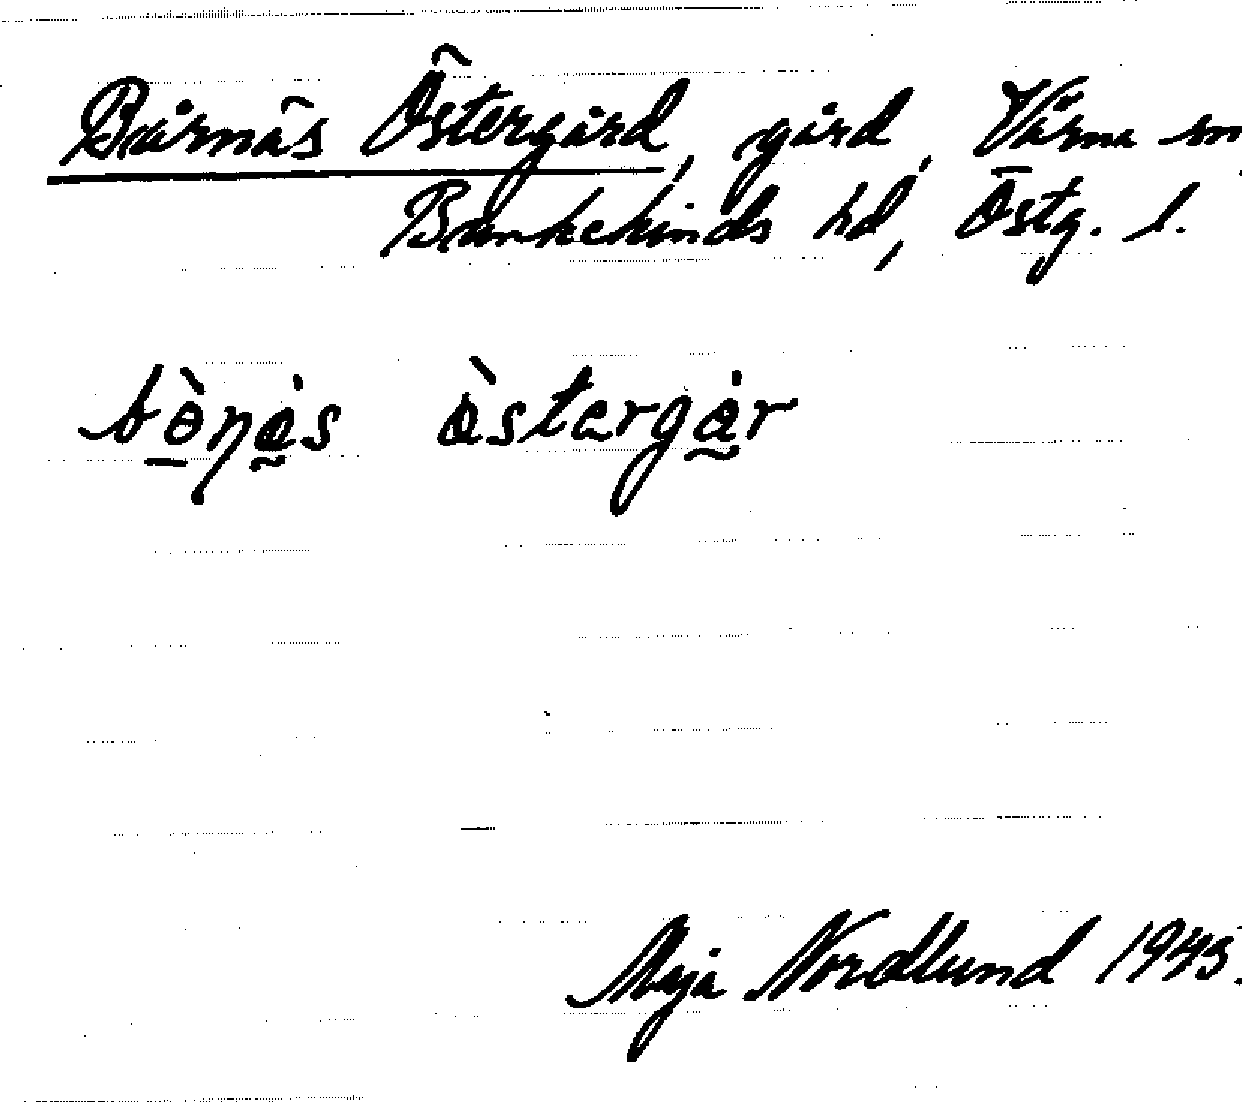 Bjärnäs Östergård, gård, Värna sn
Bankekinds hd, Östg. l.
östergår
Maja Nordlund 1945.